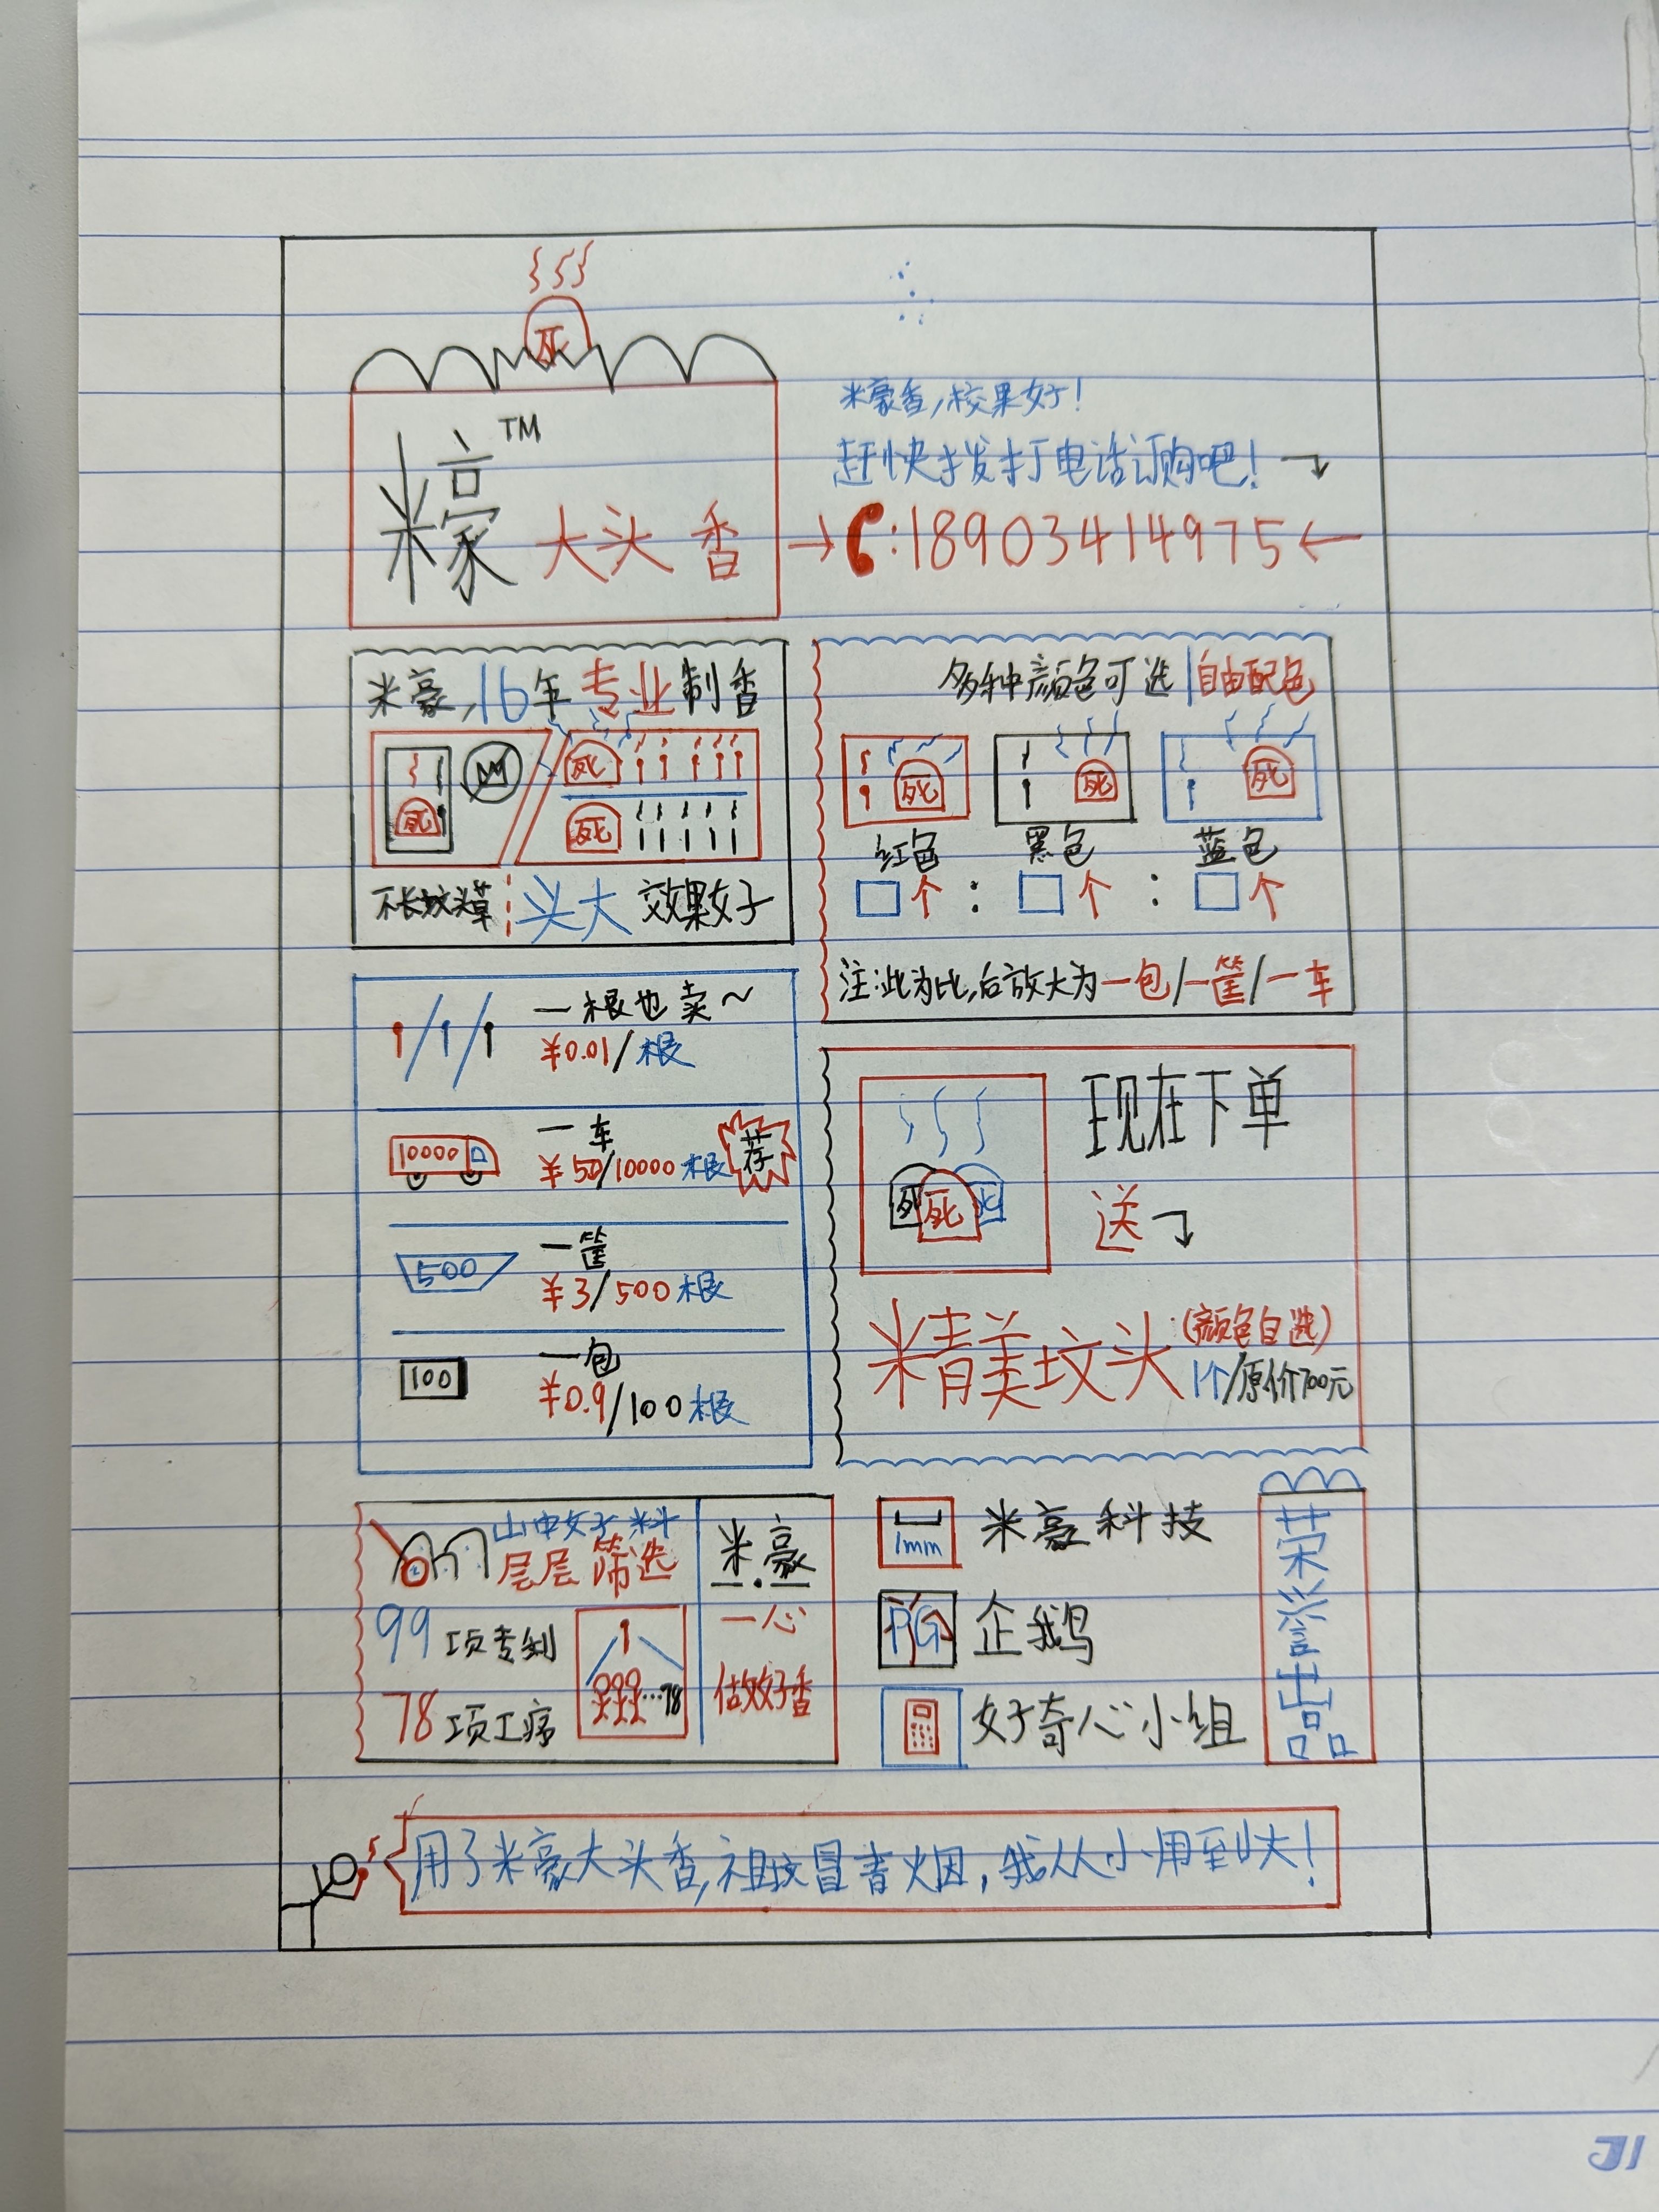 死
米豪™ 大头香
米豪香,校果好!
赶快拨打电话订购吧!
:18903414975
米豪,16年专业制香
死
死
死
不长坟头草
头大 效果好
多种颜色可选|自由配色
死
死
死
红色
黑色
蓝色
个:
个:
个
注:此为比,后放大为一包/一筐/一车
一根也卖~
¥0.01/根
10000
一车
¥50/10000根
荐
500
一筐
¥3/500根
100
一包
¥0.9/100根
死
死
死
现在下单
送
精美坟头
(颜色自选)
1个/原价700元
山中好料
层层筛选
99项专利
78项工序
...78
米豪
一心
做好香
1mm
米豪科技
PG
企鹅
好奇心小组
荣誉出品
用了米豪大头香,祖坟冒青烟,我从小用到大!